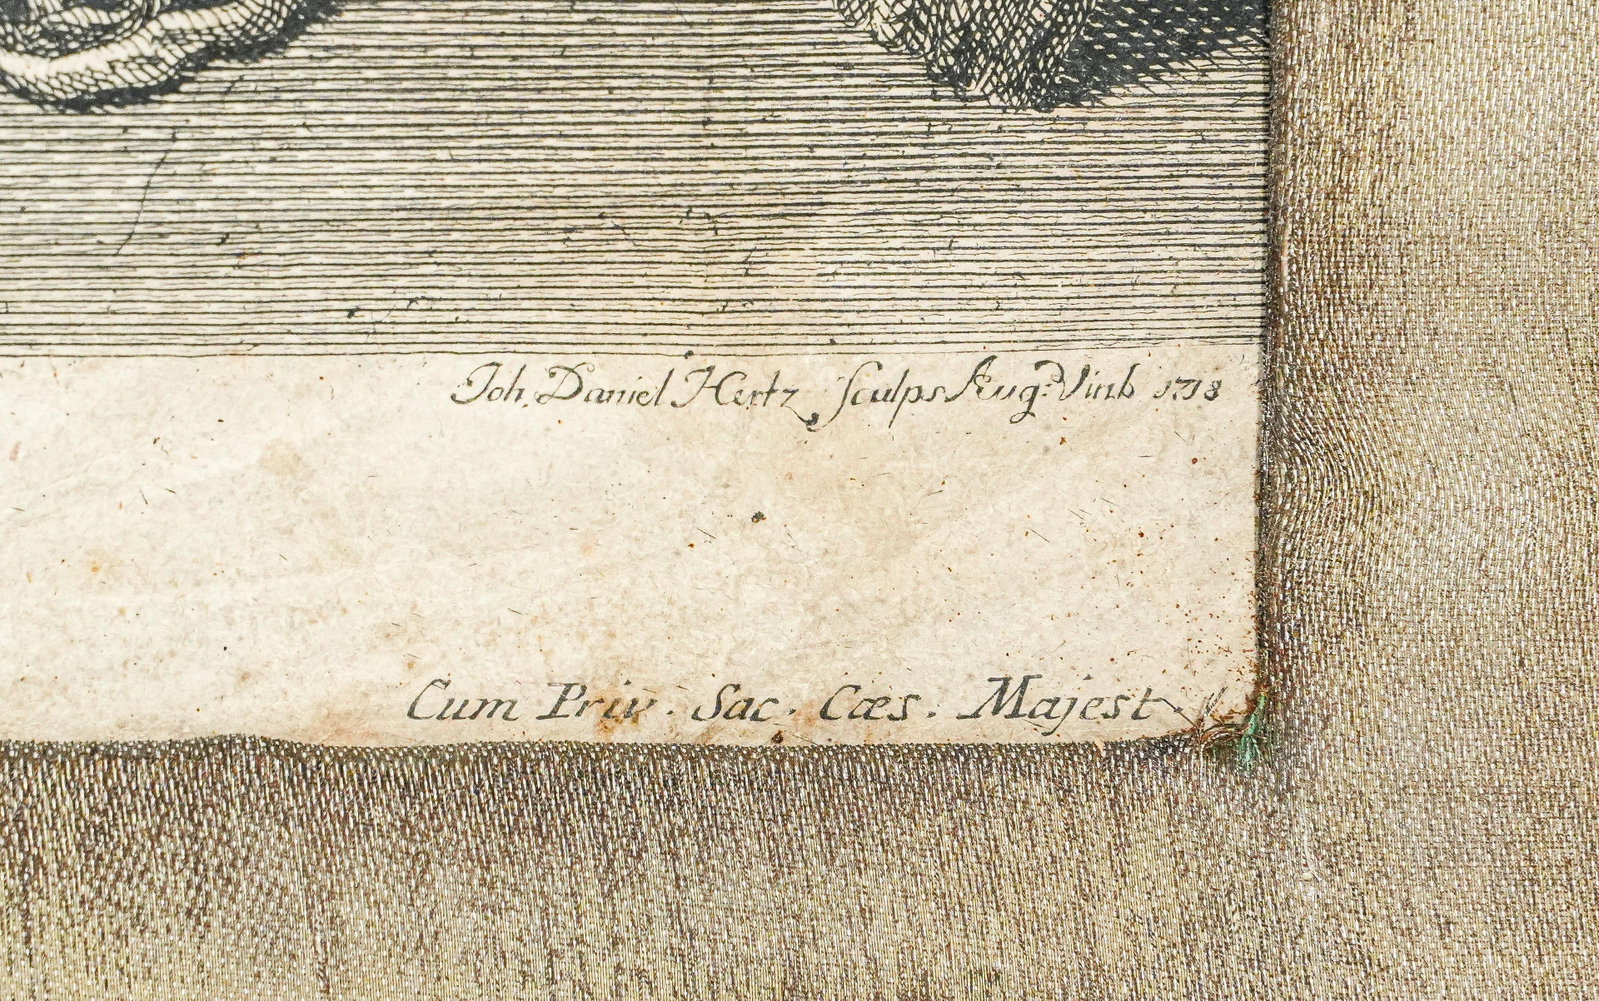 Joh. Daniel Hertz Sculps Aug: Vinb 1718
Cum Priv. Sac. Cæs. Majest.